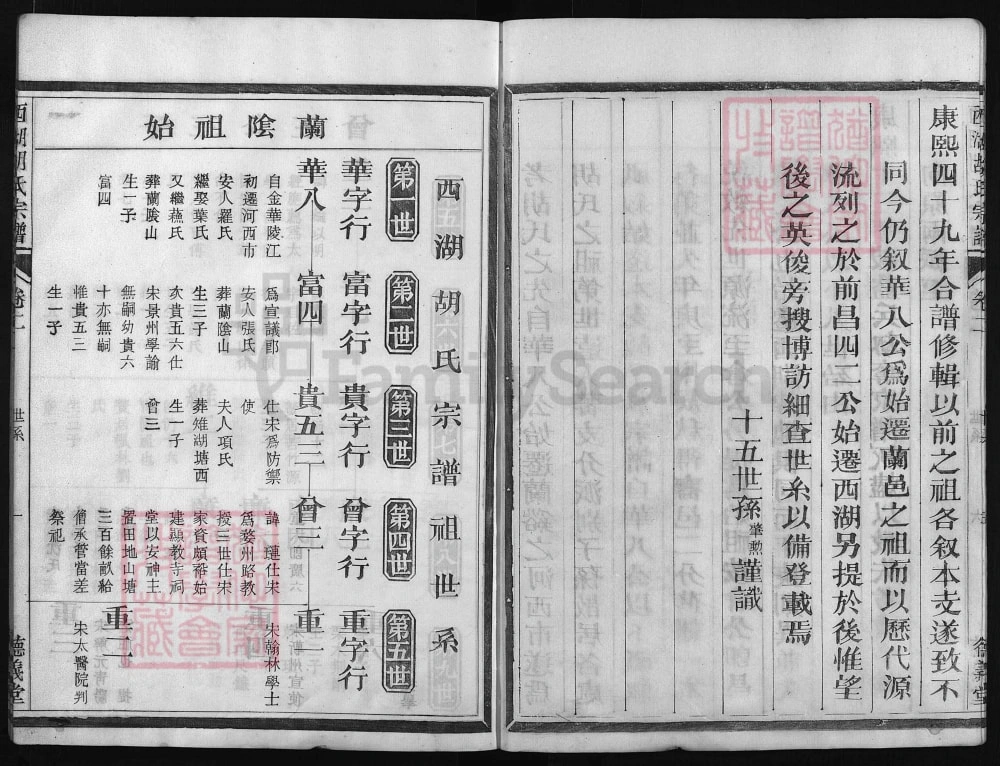 康熙四十九年合譜修輯以前之祖各叙本支遂致不
同今仍叙華八公爲始遷蘭邑之祖而以歷代源
流列之於前昌四二公始遷西湖另提於後惟望
後之英俊旁搜博訪細查世系以備登載焉
十五世孫肇勲謹識
西湖胡氏宗譜
卷二
世系
德義堂
西湖胡氏宗譜祖世系
第一世 第二世 第三世 第四世 第五世
華字行 富字行 貴字行 曾字行 重字行
蘭陰祖始
華八 富四 貴五三 曾三 重一
自金華陵江
初遷河西市
安人羅氏
繼娶葉氏
又繼燕氏
葬蘭陰山
生一子
富四
爲宣議郎
安人張氏
葬蘭陰山
生三子
次貴五六仕
宋景州學諭
無嗣幼貴六
十亦無嗣
惟貴五三
生一子
仕宋爲防禦
使
夫人項氏
葬雉湖塘西
生一子
曾三
諱 璉仕宋
爲婺州路教
授三世仕宋
家資頗裕始
建顯教寺祠
堂以安神主
置田地山塘
三百餘畝給
僧承管當差
祭祀
宋翰林學士
重二
宋太醫院判
西湖胡氏宗譜
卷二
世系
一
德義堂
FamilySearch